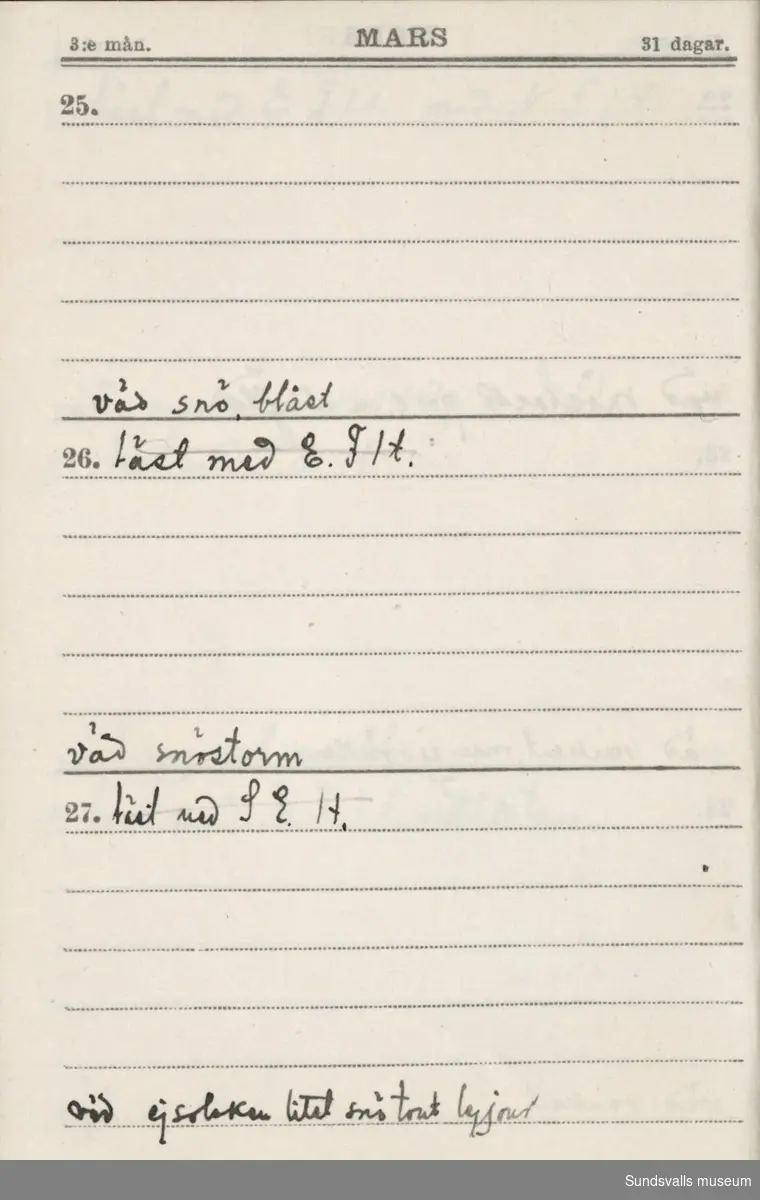 3:e mån. MARS 31 dagar.
25.
väd snö, blåst
26. läst med E. F H.
väd snöstorm
27. läst med S E. H.
väd ej solsken litet snö
Sundsvalls museum